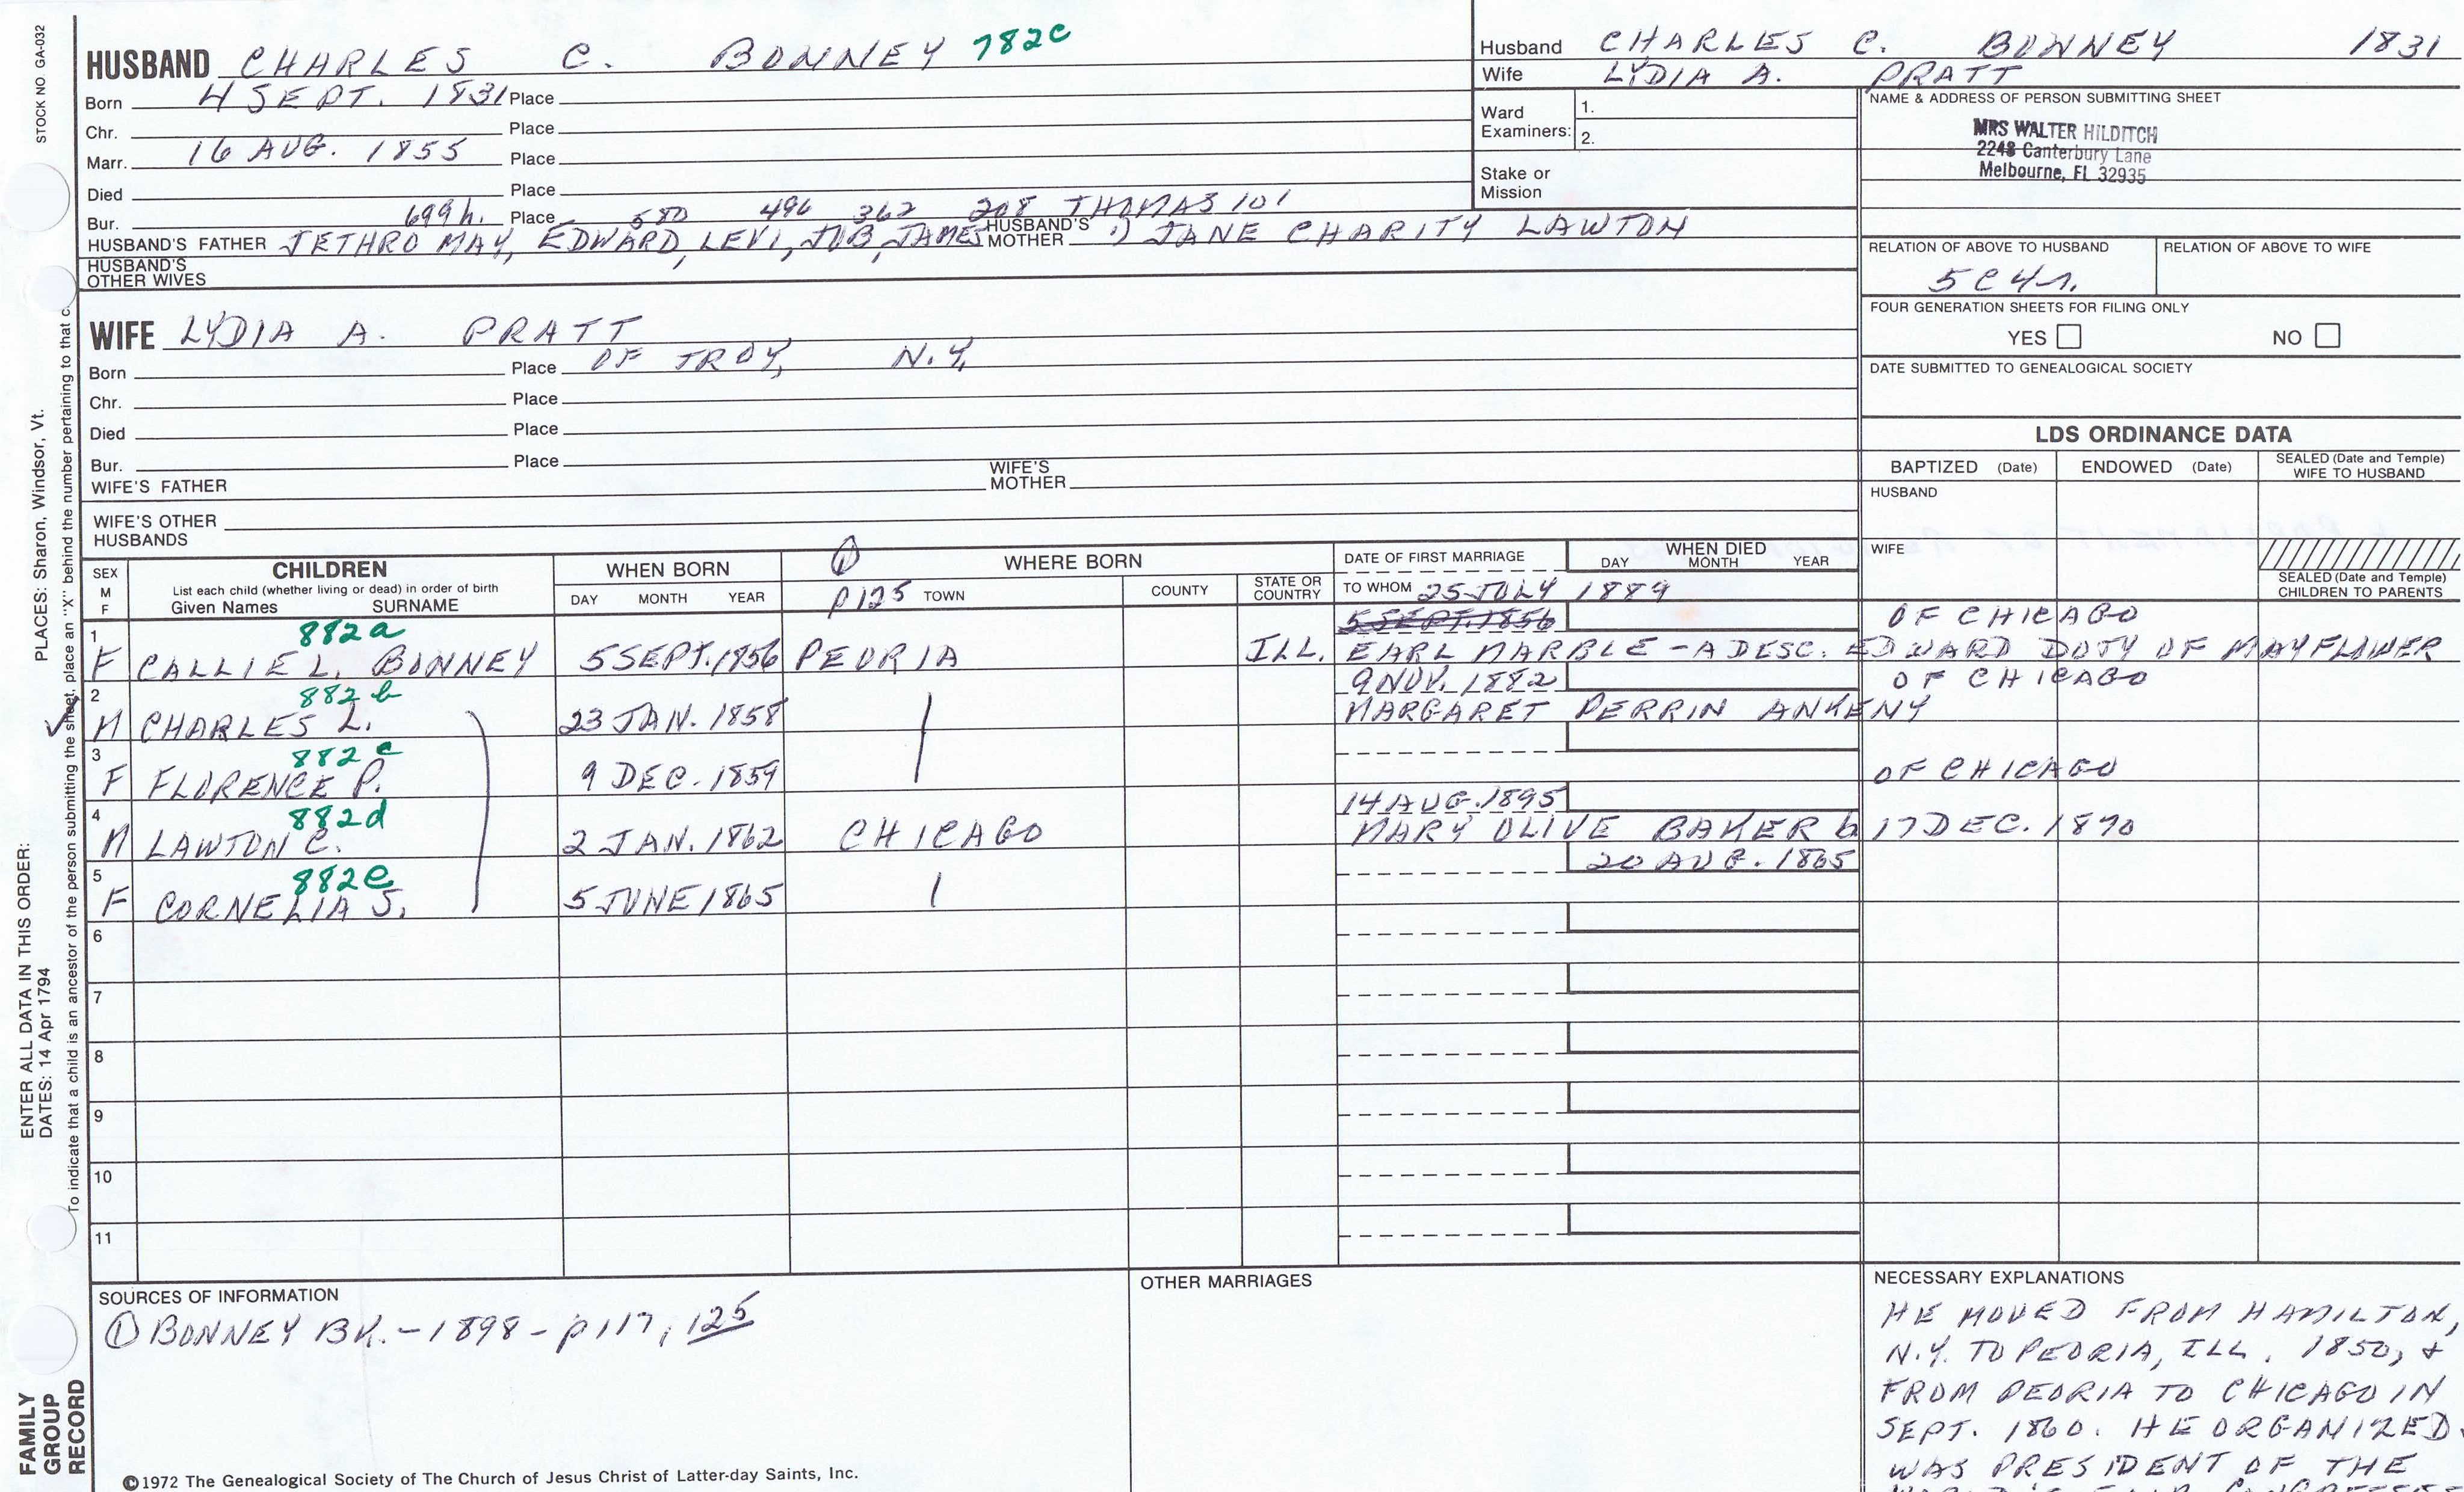 STOCK NO GA-032
HUSBAND CHARLES C. BONNEY 782c
Born 4 SEPT. 1831 Place
Chr. Place
Marr. 16 AUG. 1855 Place
Died Place
Bur. Place
699 h. 580 496 362 208 THOMAS 101
HUSBAND'S FATHER JETHRO MAY, EDWARD, LEVI, JOB, JAMES HUSBAND'S MOTHER 1) JANE CHARITY LAWTON
HUSBAND'S OTHER WIVES
Husband CHARLES C. BONNEY 1831
Wife LYDIA A. PRATT
Ward Examiners: 1.
2.
Stake or Mission
NAME & ADDRESS OF PERSON SUBMITTING SHEET
MRS WALTER HILDITCH
2248 Canterbury Lane
Melbourne, FL 32935
RELATION OF ABOVE TO HUSBAND RELATION OF ABOVE TO WIFE
5C4r.
FOUR GENERATION SHEETS FOR FILING ONLY
YES NO
DATE SUBMITTED TO GENEALOGICAL SOCIETY
WIFE LYDIA A. PRATT
Born Place OF TROY, N.Y.
Chr. Place
Died Place
Bur. Place
WIFE'S FATHER WIFE'S MOTHER
WIFE'S OTHER HUSBANDS
LDS ORDINANCE DATA
BAPTIZED (Date) ENDOWED (Date) SEALED (Date and Temple) WIFE TO HUSBAND
HUSBAND
WIFE
SEALED (Date and Temple) CHILDREN TO PARENTS
SEX M F
CHILDREN
List each child (whether living or dead) in order of birth
Given Names SURNAME
WHEN BORN
DAY MONTH YEAR
① WHERE BORN
p125 TOWN COUNTY STATE OR COUNTRY
DATE OF FIRST MARRIAGE
TO WHOM
WHEN DIED
DAY MONTH YEAR
25 JULY 1889
1 882a 5 SEPT. 1856 OF CHICAGO
F CALLIE L. BONNEY 5 SEPT. 1856 PEORIA ILL. EARL MARBLE - A DESC. EDWARD DOTY OF MAYFLOWER
2 882b 9 NOV. 1882 OF CHICAGO
M CHARLES L. 23 JAN. 1858 MARGARET PERRIN ANKENY
3 882c
F FLORENCE P. 9 DEC. 1859 OF CHICAGO
4 882d 14 AUG. 1895
M LAWTON C. 2 JAN. 1862 CHICAGO MARY OLIVE BAKER b 17 DEC. 1870
5 882e 20 AUG. 1865
F CORNELIA S. 5 JUNE 1865
6
7
8
9
10
11
SOURCES OF INFORMATION
① BONNEY BK. - 1898 - p 117, 125
OTHER MARRIAGES
NECESSARY EXPLANATIONS
HE MOVED FROM HAMILTON,
N.Y. TO PEORIA, ILL. 1850, &
FROM PEORIA TO CHICAGO IN
SEPT. 1860. HE ORGANIZED
WAS PRESIDENT OF THE
©1972 The Genealogical Society of The Church of Jesus Christ of Latter-day Saints, Inc.
ENTER ALL DATA IN THIS ORDER:
DATES: 14 Apr 1794
PLACES: Sharon, Windsor, Vt.
To indicate that a child is an ancestor of the person submitting the sheet, place an "X" behind the number pertaining to that c.
FAMILY GROUP RECORD